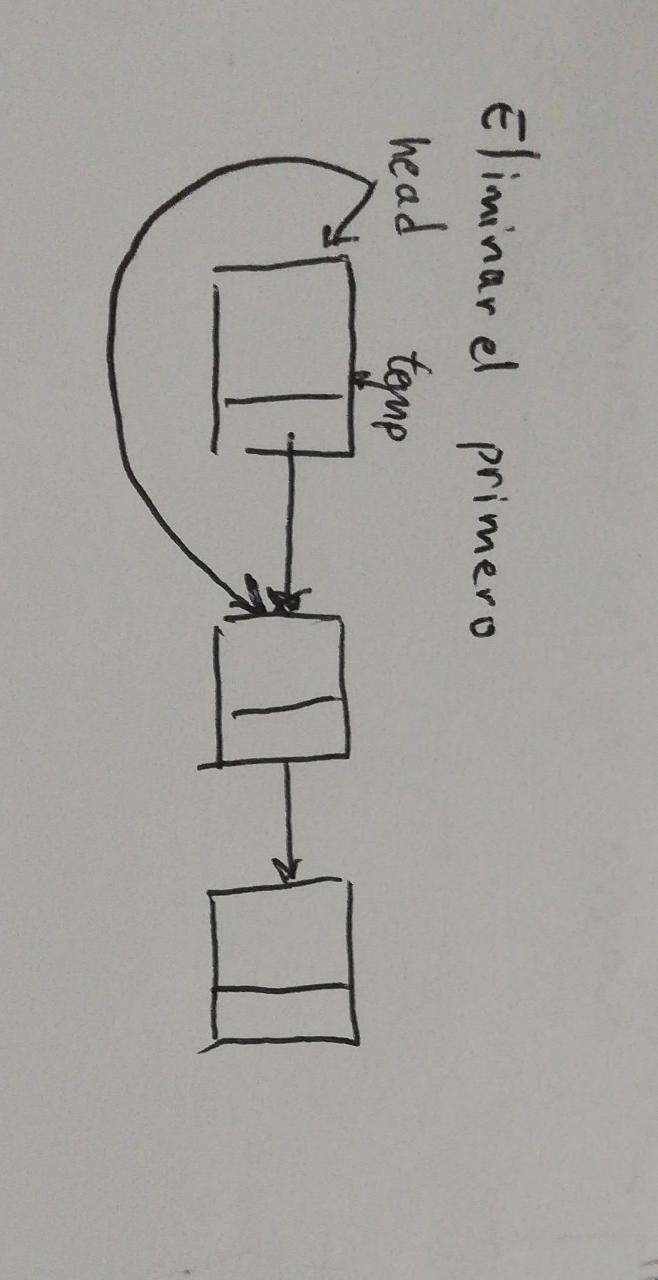 Eliminar el primero
head temp